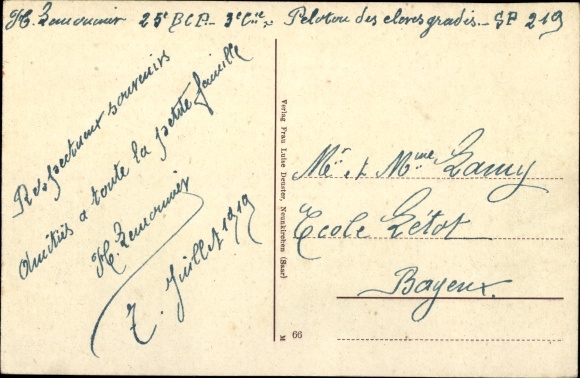 H. Lemonnier 25e BCP - 3e Cie - Peloton des eleves gradés - SP 219
Respectueux souvenirs
amitiés a toute la petite famille
H. Lemonnier
7. Juillet 1919
Verlag Frau Luise Deuster, Neunkirchen (Saar)
Mr et Mme Lamy
Ecole Létot
Bayeux.
M 66